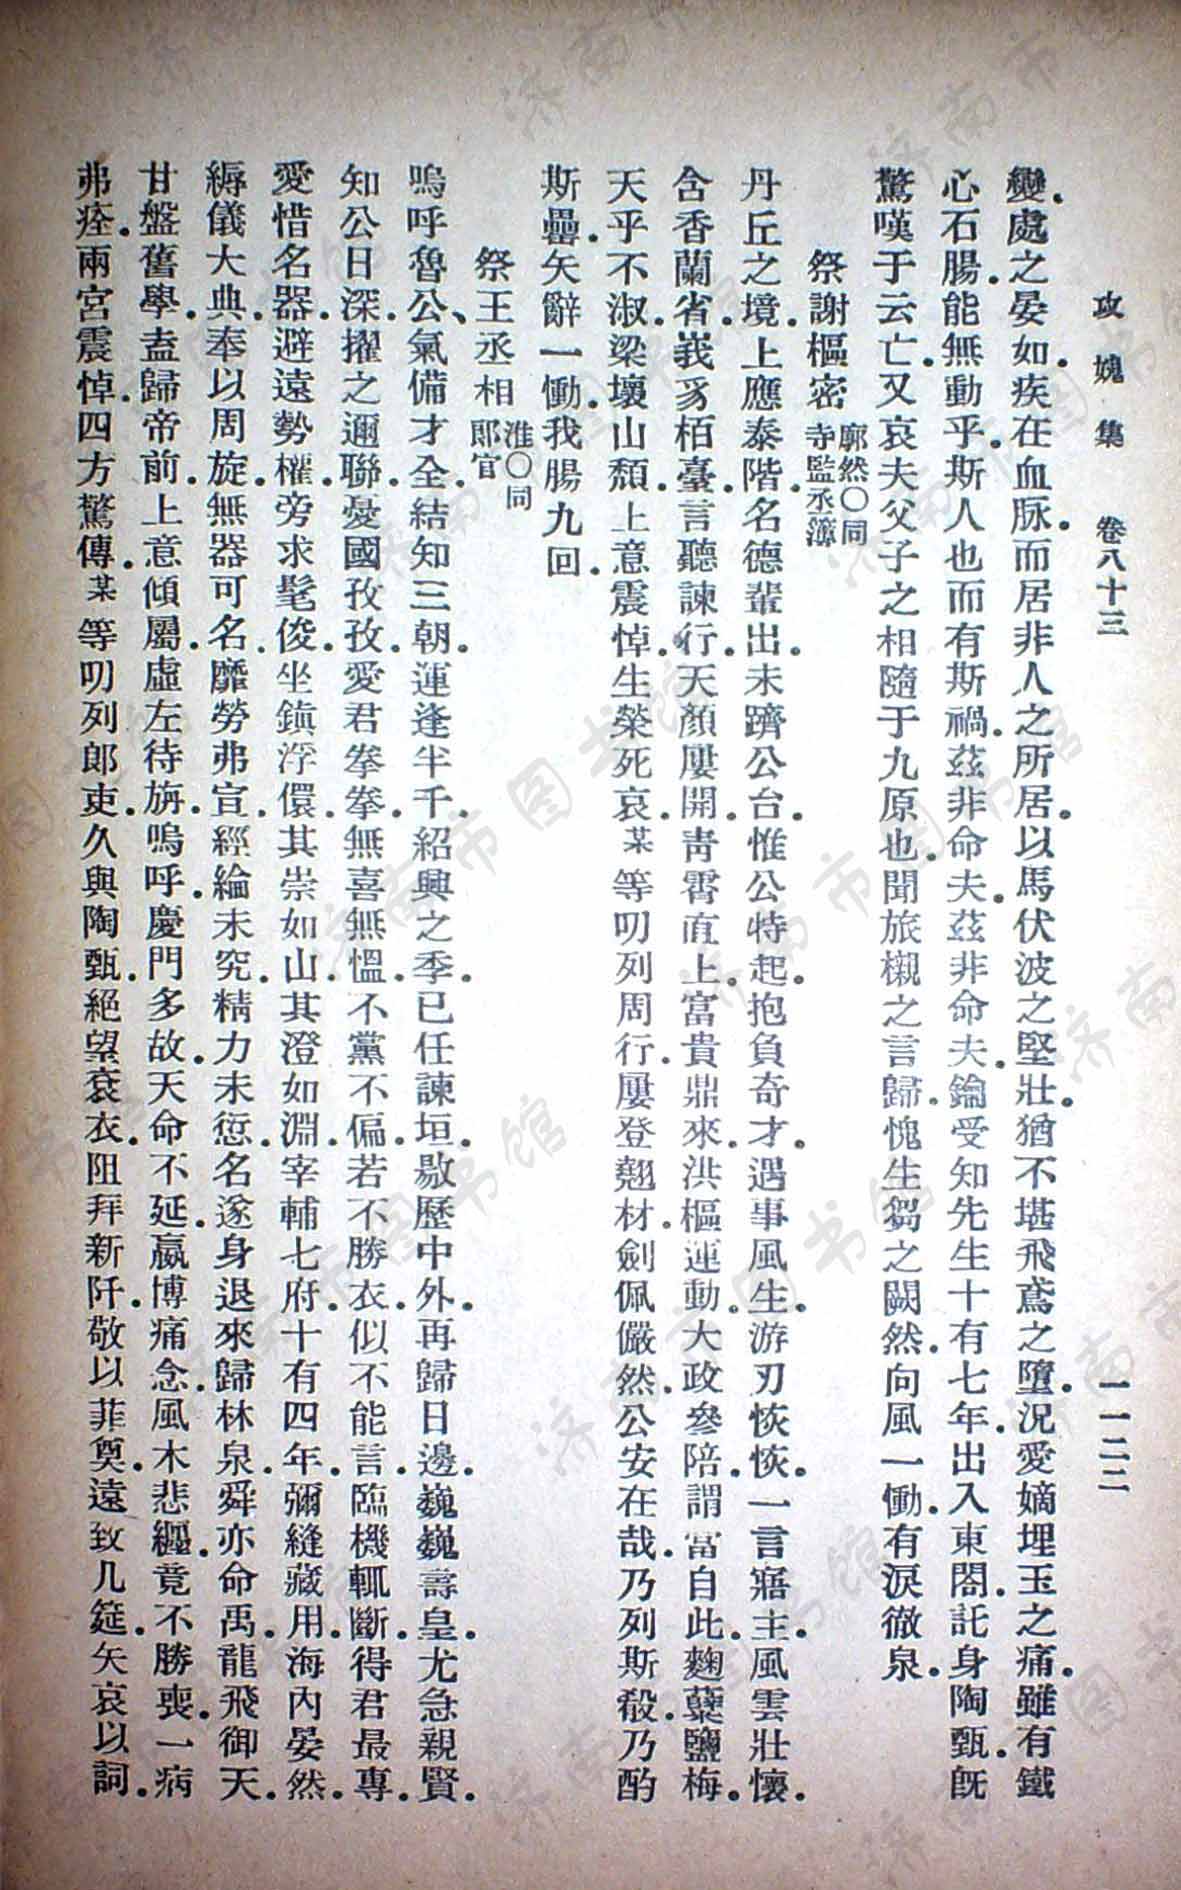 攻媿集　卷八十三　一一二二
變處之晏如疾在血脈而居非人之所居以馬伏波之堅壯猶不堪飛鳶之墮況愛嫡埋玉之痛雖有鐵
心石腸能無動乎斯人也而有斯禍茲非命夫茲非命夫鑰受知先生十有七年出入東閤託身陶甄旣
驚嘆于云亡又哀夫父子之相隨于九原也聞旅櫬之言歸愧生芻之闕然向風一慟有淚徹泉
祭謝樞密廓然〇同寺監丞簿
丹丘之境上應泰階名德輩出未躋公台惟公特起抱負奇才遇事風生游刃恢恢一言寤主風雲壯懷
含香蘭省峩豸柏臺言聽諫行天顏屢開青霄直上富貴鼎來洪樞運動大政參陪謂當自此麴糵鹽梅
天乎不淑梁壞山頹上意震悼生榮死哀某等叨列周行屢登翹材劍佩儼然公安在哉乃列斯殽乃酌
斯罍矢辭一慟我腸九回
祭王丞相淮〇同郎官
嗚呼魯公氣備才全結知三朝運逢半千紹興之季已任諫垣敭歷中外再歸日邊巍巍壽皇尤急親賢
知公日深擢之邇聯憂國孜孜愛君拳拳無喜無慍不黨不偏若不勝衣似不能言臨機輒斷得君最專
愛惜名器避遠勢權旁求髦俊坐鎮浮儇其崇如山其澄如淵宰輔七府十有四年彌縫藏用海內晏然
縟儀大典奉以周旋無器可名靡勞弗宣經綸未究精力未愆名遂身退來歸林泉舜亦命禹龍飛御天
甘盤舊學盍歸帝前上意傾屬虛左待旃嗚呼慶門多故天命不延嬴博痛念風木悲纏竟不勝喪一病
弗痊兩宮震悼四方驚傳某等叨列郎吏久與陶甄絕望袞衣阻拜新阡敬以菲奠遠致几筵矢哀以詞